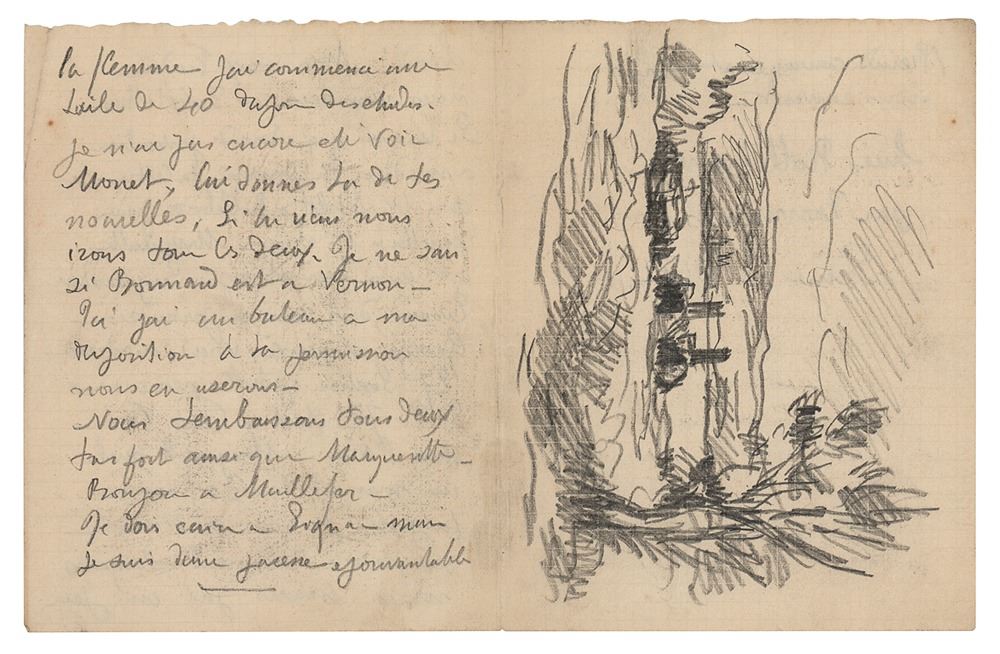 la femme j'ai commencé une
toile de 40 du jour des chutes.
je n'ai pas encore été voir
Monet, lui donnes tu de tes
nouvelles, Si tu viens nous
irons tous les deux. Je ne sais
si Bonnard est a Vernon —
Ici j'ai un bateau a ma
disposition à ta permission
nous en userons —
Nous t'embrassons tous deux
fort ainsi que Marguerite —
Bonjour a Maillefer —
Je dois écrire a Signac mais
je suis d'une paresse epouvantable